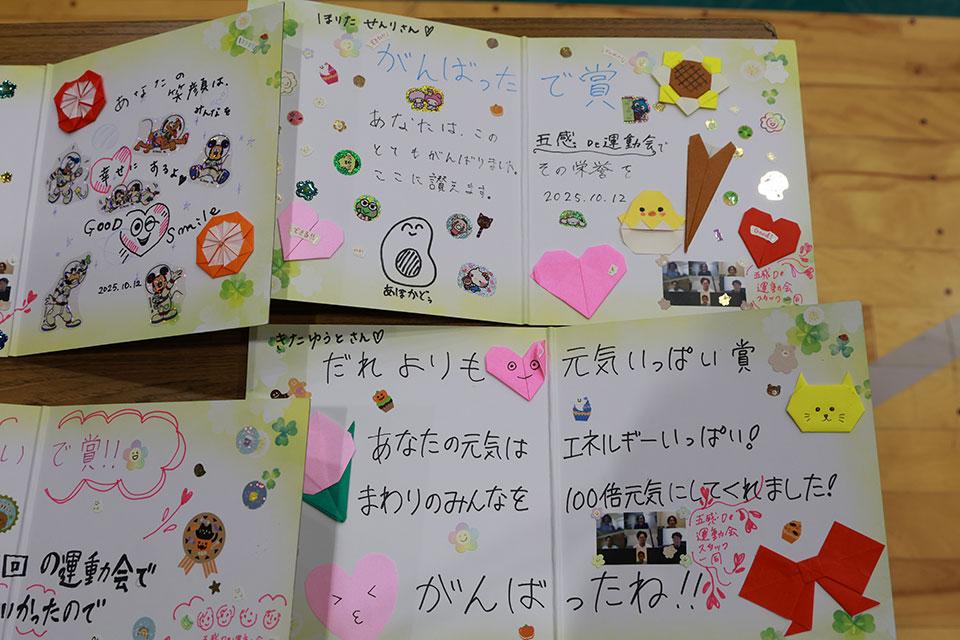 あなたの
笑顔は、
みんなを
幸せにあるよ♥
GOOD Smile
2025.10.12
ほりた せんりさん♡
がんばったで賞
あなたは、この
五感 De 運動会で
とてもがんばりました。
その栄誉を
ここに讃えます。
2025.10.12
あぼかどぅ
Good!
五感 De
運動会
スタッフ
一同
きたゆうとさん♡
だれよりも元気いっぱい賞
あなたの元気はエネルギーいっぱい!
まわりのみんなを100倍元気にしてくれました!
五感 De
運動会
スタッフ
一同
がんばったね!!
で賞!!
回の運動会で
かったので